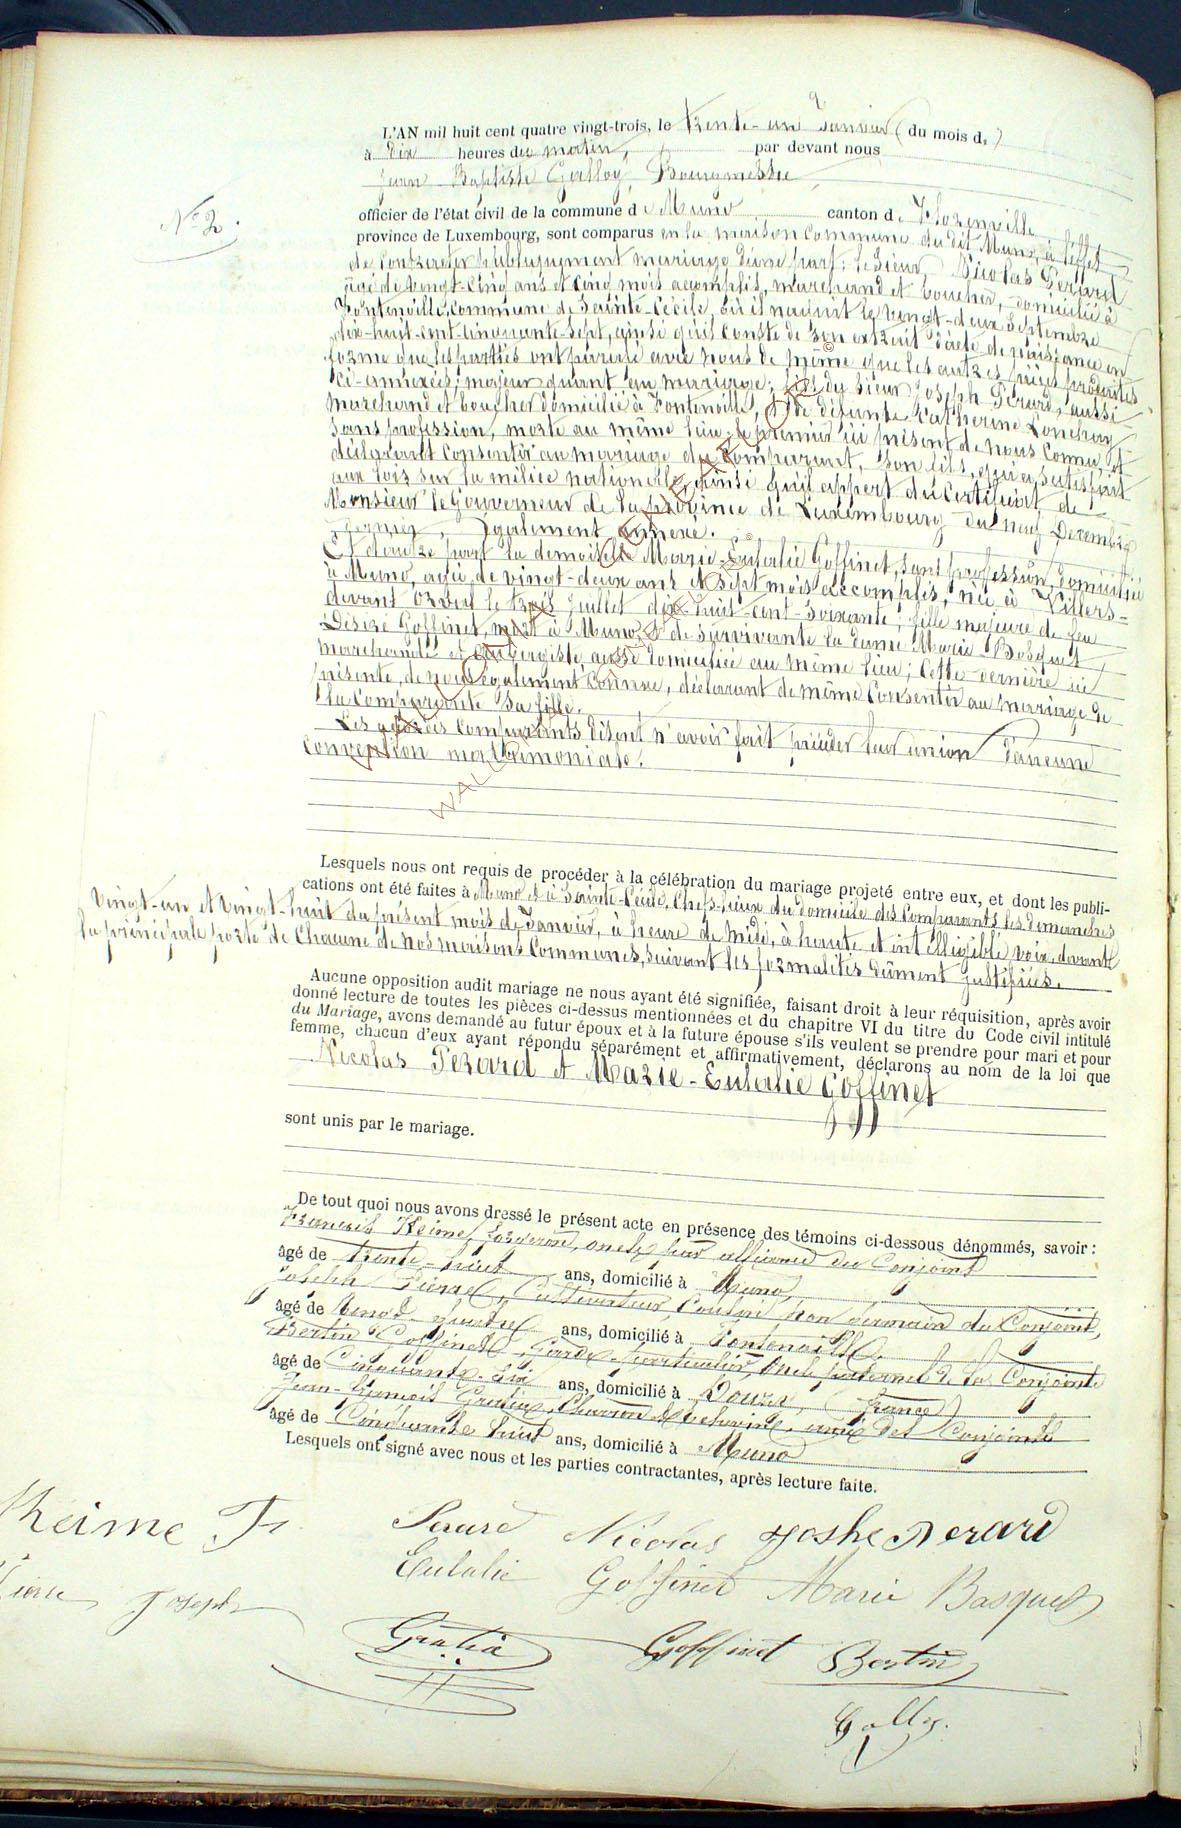 L'AN mil huit cent quatre vingt-trois, le trente-un Janvier (du mois d,)
à dix heures du matin, par devant nous
Jean Baptiste Galloy, Bourgmestre
officier de l'état civil de la commune de Muno canton de Florenville
N° 2.
province de Luxembourg, sont comparus en la maison commune du dit Muno, à l'effet
de contracter publiquement mariage d'une part: le sieur Nicolas Perard
âgé de vingt-cinq ans et cinq mois accomplis, marchand et boucher, domicilié à
Fontenoille, commune de Sainte-Cécile, où il naquit le vingt-deux Septembre
dix-huit-cent-cinquante-sept, ainsi qu'il conste de son extrait d'acte de naissance en
forme que les parties ont paraphé avec nous de même que les autres pièces produites
ci-annexées; majeur quant au mariage; fils du sieur Joseph Perard, aussi
marchand et boucher domicilié à Fontenoille, et de défunte Catherine Lonchay
sans profession, morte au même lieu; le premier ici présent de nous connu, et
déclarant consentir au mariage du comparant, son fils, qui a satisfait
aux lois sur la milice nationale, ainsi qu'il appert du certificat de
Monsieur le Gouverneur de la province de Luxembourg du neuf Décembre
dernier, également annexé.
Et d'autre part la demoiselle Marie-Eulalie Goffinet, sans profession, domiciliée
à Muno, agée de vingt-deux ans et sept mois accomplis, née à Villers-
devant Orval le trois Juillet dix-huit-cent-soixante; fille majeure de feu
Désiré Goffinet, mort à Muno, et de survivante la dame Marie Bosquet
marchande et aubergiste, aussi domiciliée au même lieu; cette dernière ici
présente, de nous également connue, déclarant de même consentir au mariage de
la comparante sa fille.
Les comparants disent n'avoir fait précéder leur union d'aucune
convention matrimoniale.
WALLONIA GENEAFLOR
Lesquels nous ont requis de procéder à la célébration du mariage projeté entre eux, et dont les publi-
cations ont été faites à Muno et à Sainte-Cécile, chefs-lieux du domicile des comparants les dimanches
vingt-un et vingt-huit du présent mois de Janvier, à heure de midi, à haute et intelligible voix, devant
la principale porte de chacune de nos maisons communes, suivant les formalités dûment justifiées.
Aucune opposition audit mariage ne nous ayant été signifiée, faisant droit à leur réquisition, après avoir
donné lecture de toutes les pièces ci-dessus mentionnées et du chapitre VI du titre du Code civil intitulé
du Mariage, avons demandé au futur époux et à la future épouse s'ils veulent se prendre pour mari et pour
femme, chacun d'eux ayant répondu séparément et affirmativement, déclarons au nom de la loi que
Nicolas Perard et Marie-Eulalie Goffinet
sont unis par le mariage.
De tout quoi nous avons dressé le présent acte en présence des témoins ci-dessous dénommés, savoir:
François Kheime, forgeron, oncle par alliance du Conjoint
âgé de trente-huit ans, domicilié à Muno
Joseph Pierre, Cultivateur, Cousin non germain du Conjoint,
âgé de vingt-quatre ans, domicilié à Fontenoille
Bertin Goffinet, Garde-particulier, oncle paternel de la Conjointe
âgé de Cinquante-six ans, domicilié à Douzy, (France)
Jean-François Gratia, Charron, ami des Conjoints
âgé de Cinquante huit ans, domicilié à Muno
Lesquels ont signé avec nous et les parties contractantes, après lecture faite.
Kheime F Perard Nicolas Joshe Perard
Eulalie Goffinet Marie Basquet
Pierre Joseph
Gratia Goffinet Bertin
Galloy.